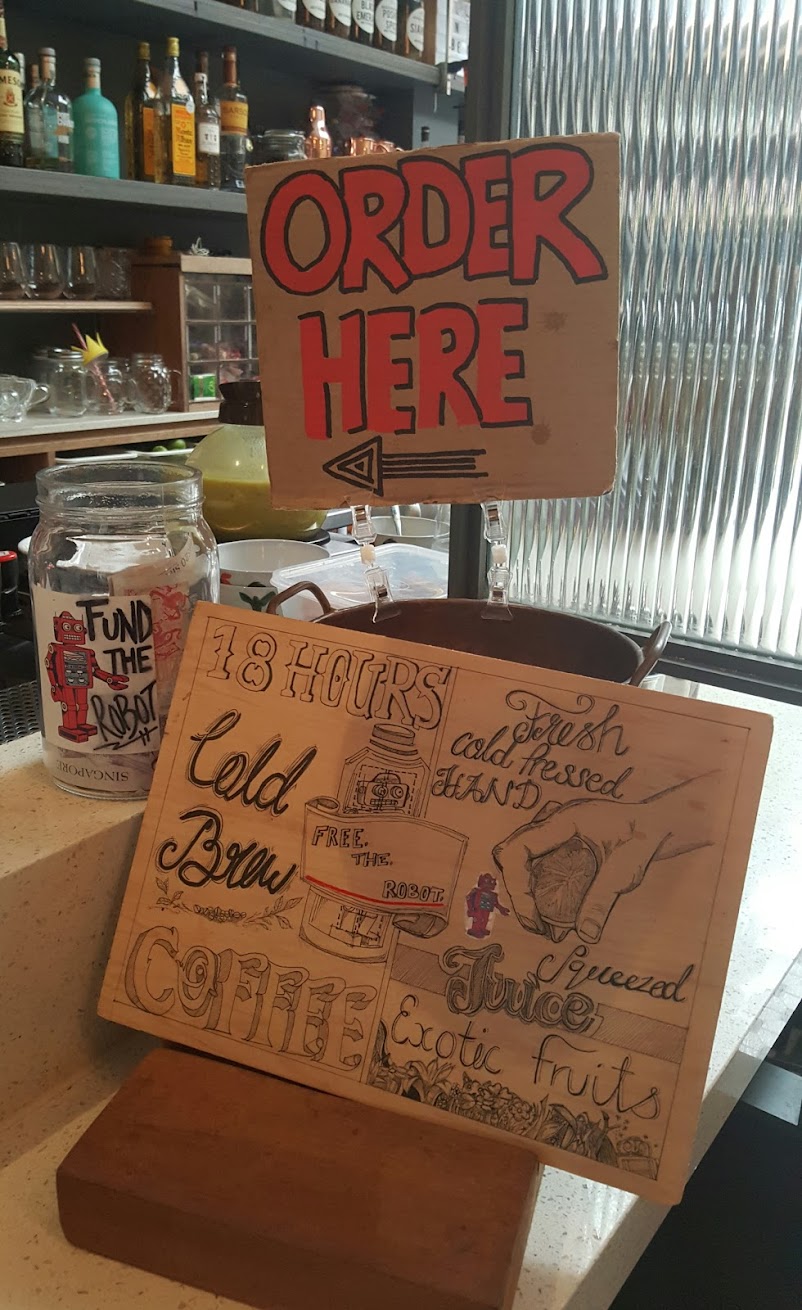 ORDER
HERE
FUND
THE
ROBOT
SINGAPORE
18 HOURS
Cold
Brew
COFFEE
FREE.
THE.
ROBOT.
Fresh
cold Pressed
HAND
Squeezed
Juice
Exotic fruits